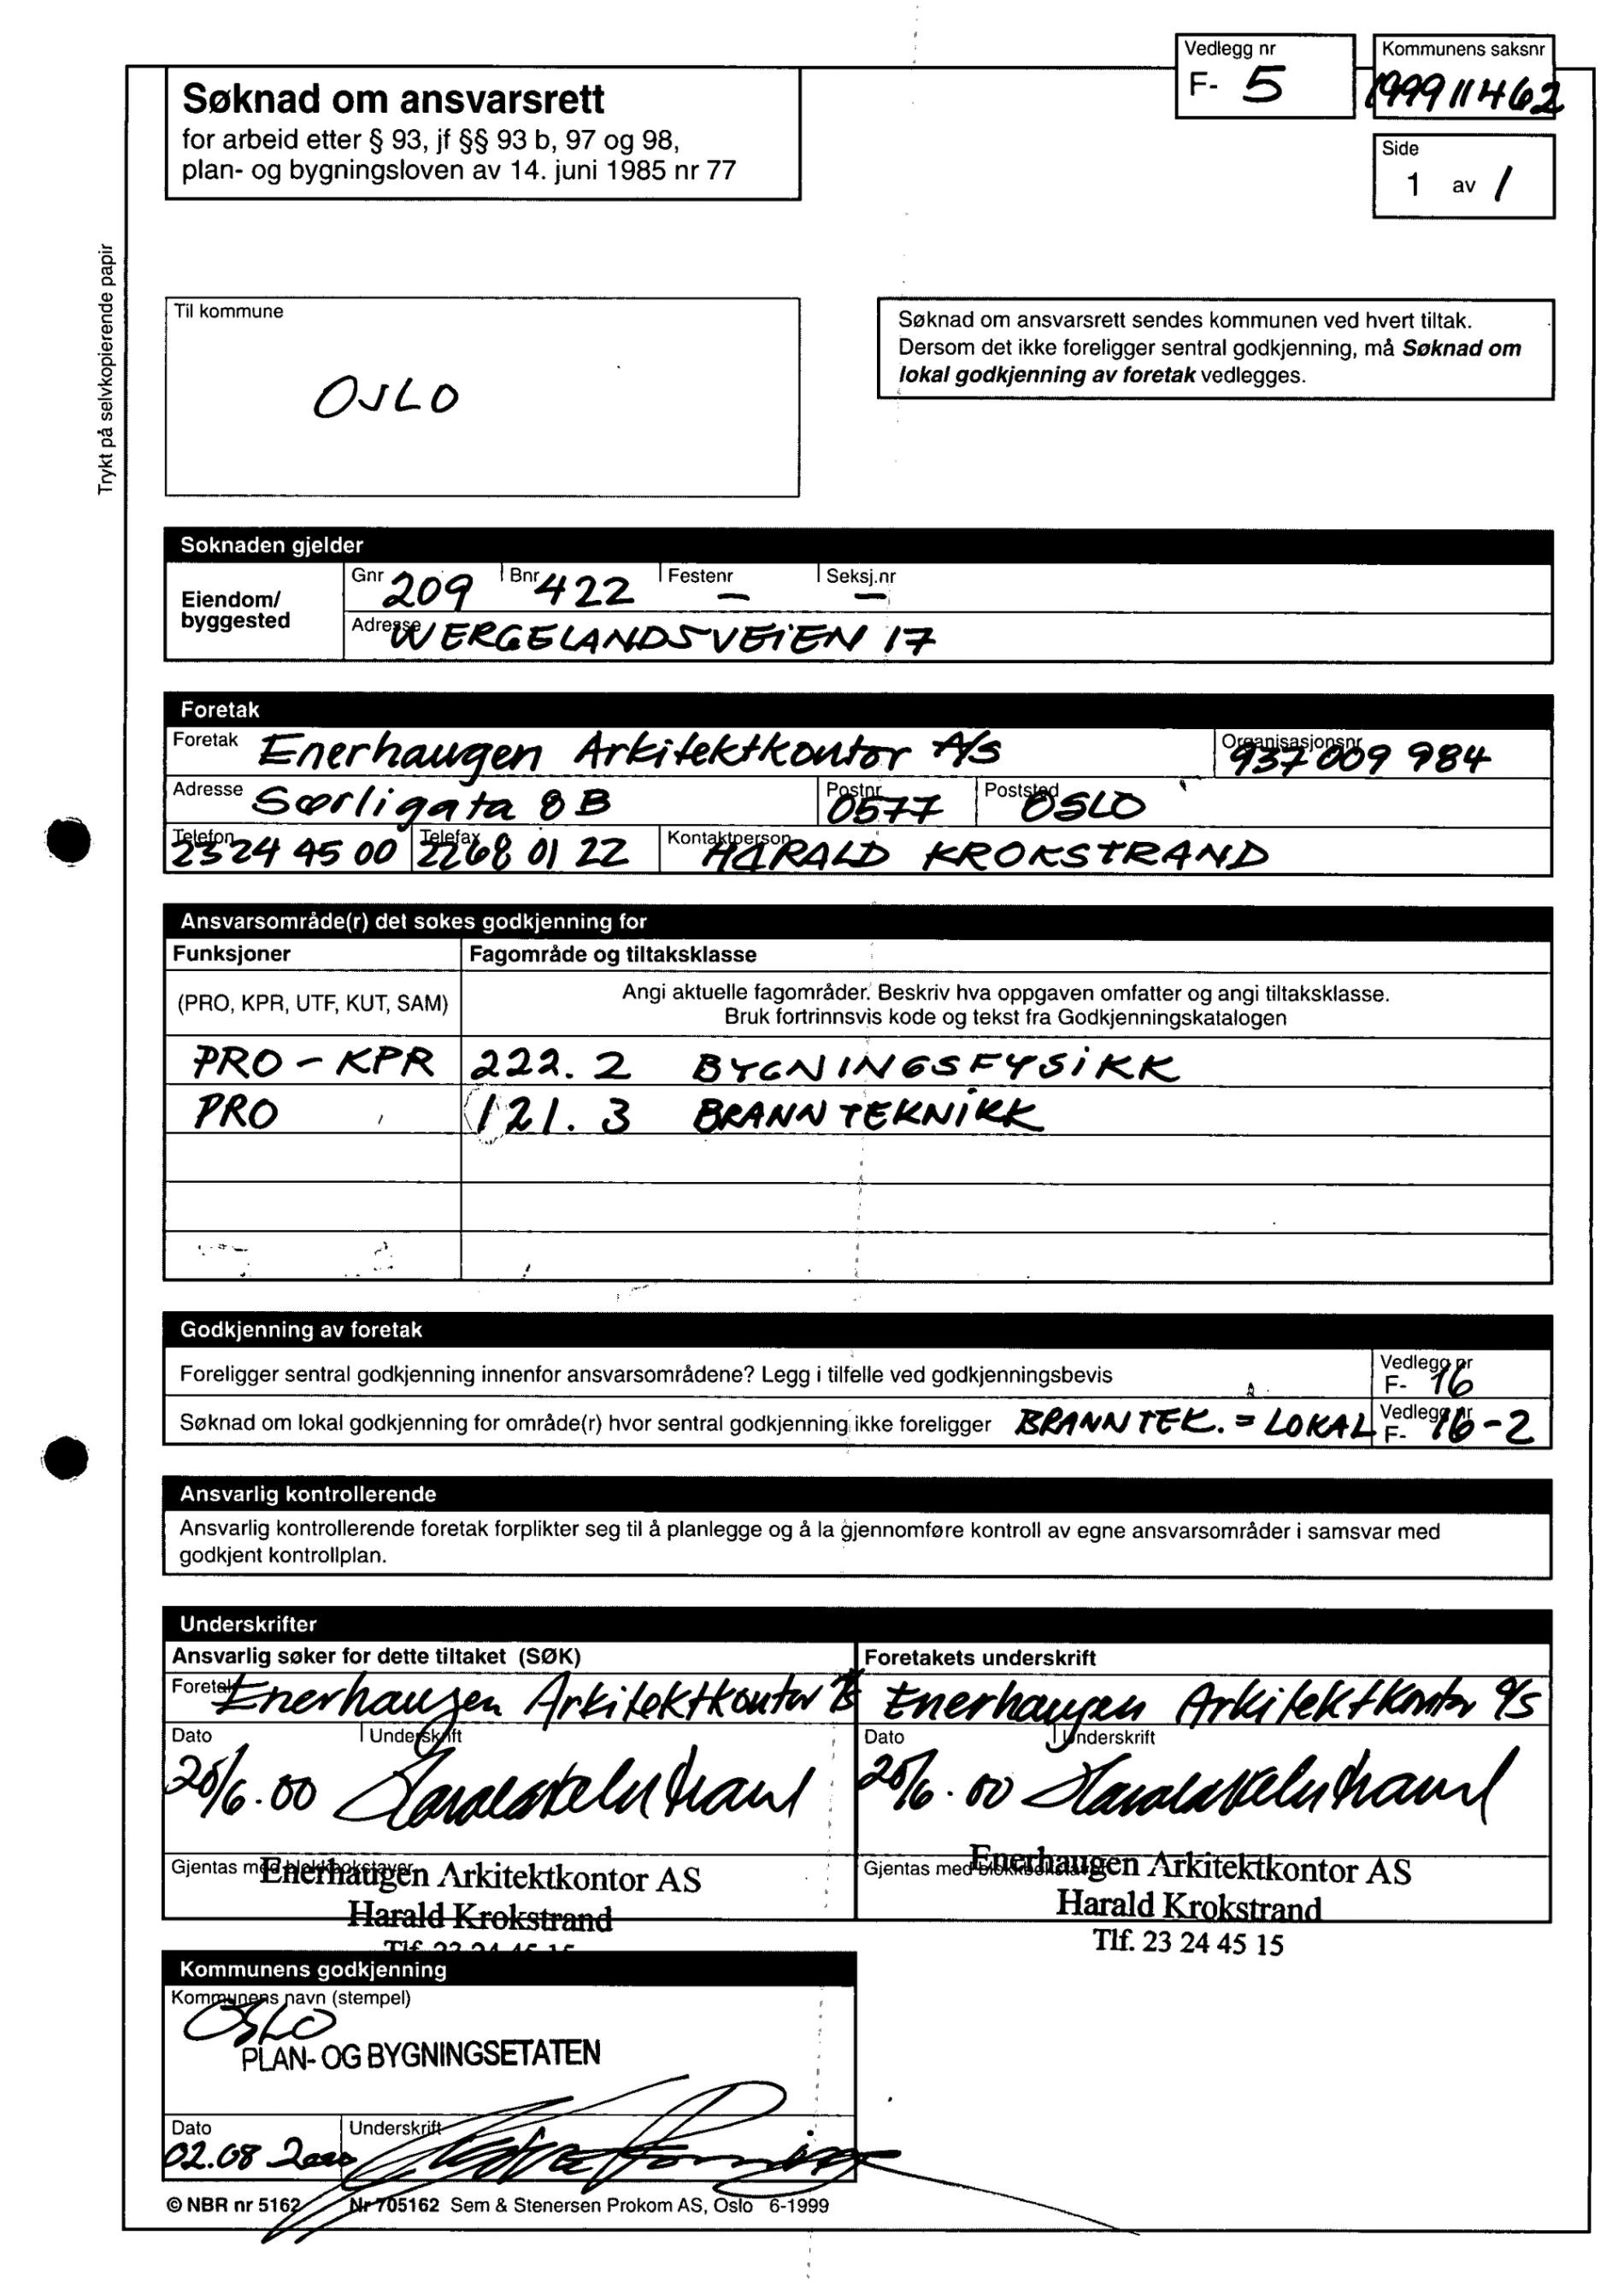 Vedlegg nr
F- 5
Kommunens saksnr
199911462
Søknad om ansvarsrett
for arbeid etter § 93, jf §§ 93 b, 97 og 98,
plan- og bygningsloven av 14. juni 1985 nr 77
Side
1 av 1
Trykt på selvkopierende papir
Til kommune
OSLO
Søknad om ansvarsrett sendes kommunen ved hvert tiltak.
Dersom det ikke foreligger sentral godkjenning, må Søknad om
lokal godkjenning av foretak vedlegges.
Soknaden gjelder
Eiendom/
byggested
Gnr 209 Bnr 422 Festenr – Seksj.nr –
Adresse WERGELANDSVEIEN 17
Foretak
Foretak Enerhaugen Arkitektkontor A/S Organisasjonsnr 937 009 984
Adresse Sørligata 8 B Postnr 0577 Poststed OSLO
Telefon 23 24 45 00 Telefax 2268 01 22 Kontaktperson HARALD KROKSTRAND
Ansvarsområde(r) det søkes godkjenning for
Funksjoner Fagområde og tiltaksklasse
(PRO, KPR, UTF, KUT, SAM) Angi aktuelle fagområder. Beskriv hva oppgaven omfatter og angi tiltaksklasse.
Bruk fortrinnsvis kode og tekst fra Godkjenningskatalogen
PRO - KPR 222. 2 BYGNINGSFYSIKK
PRO 121. 3 BRANNTEKNIKK
Godkjenning av foretak
Foreligger sentral godkjenning innenfor ansvarsområdene? Legg i tilfelle ved godkjenningsbevis Vedlegg nr
F- 16
Søknad om lokal godkjenning for område(r) hvor sentral godkjenning ikke foreligger BRANNTEK. = LOKAL Vedlegg nr
F- 16-2
Ansvarlig kontrollerende
Ansvarlig kontrollerende foretak forplikter seg til å planlegge og å la gjennomføre kontroll av egne ansvarsområder i samsvar med
godkjent kontrollplan.
Underskrifter
Ansvarlig søker for dette tiltaket (SØK) Foretakets underskrift
Foretak Enerhaugen Arkitektkontor Enerhaugen Arkitektkontor A/S
Dato Underskrift Dato Underskrift
/6.00 /6.00
Gjentas med blokkbokstaver Enerhaugen Arkitektkontor AS Gjentas med blokkbokstaver Enerhaugen Arkitektkontor AS
Harald Krokstrand Harald Krokstrand
Tlf. 23 24 45 15 Tlf. 23 24 45 15
Kommunens godkjenning
Kommunens navn (stempel)
OSLO
PLAN- OG BYGNINGSETATEN
Dato Underskrift
02.08 2000
© NBR nr 5162 Nr 705162 Sem & Stenersen Prokom AS, Oslo 6-1999